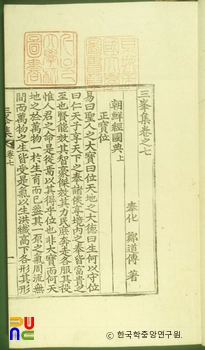 三峯集卷之七
奉化 鄭道傳 著
朝鮮經國典上
正寶位
易曰聖人之大寶曰位天地之大德曰生何以守位
曰仁天子享天下之奉諸侯享境內之奉皆富貴之
至也賢能效其智豪傑效其力民庶奔走各服其役
惟人君之命是從焉以其得乎位也非大寶而何天
地之於萬物一於生育而已蓋其一原之氣周流無
間而萬物之生皆受是氣以生洪纖高下各形其形
三峯集 卷七 一
한국학중앙연구원